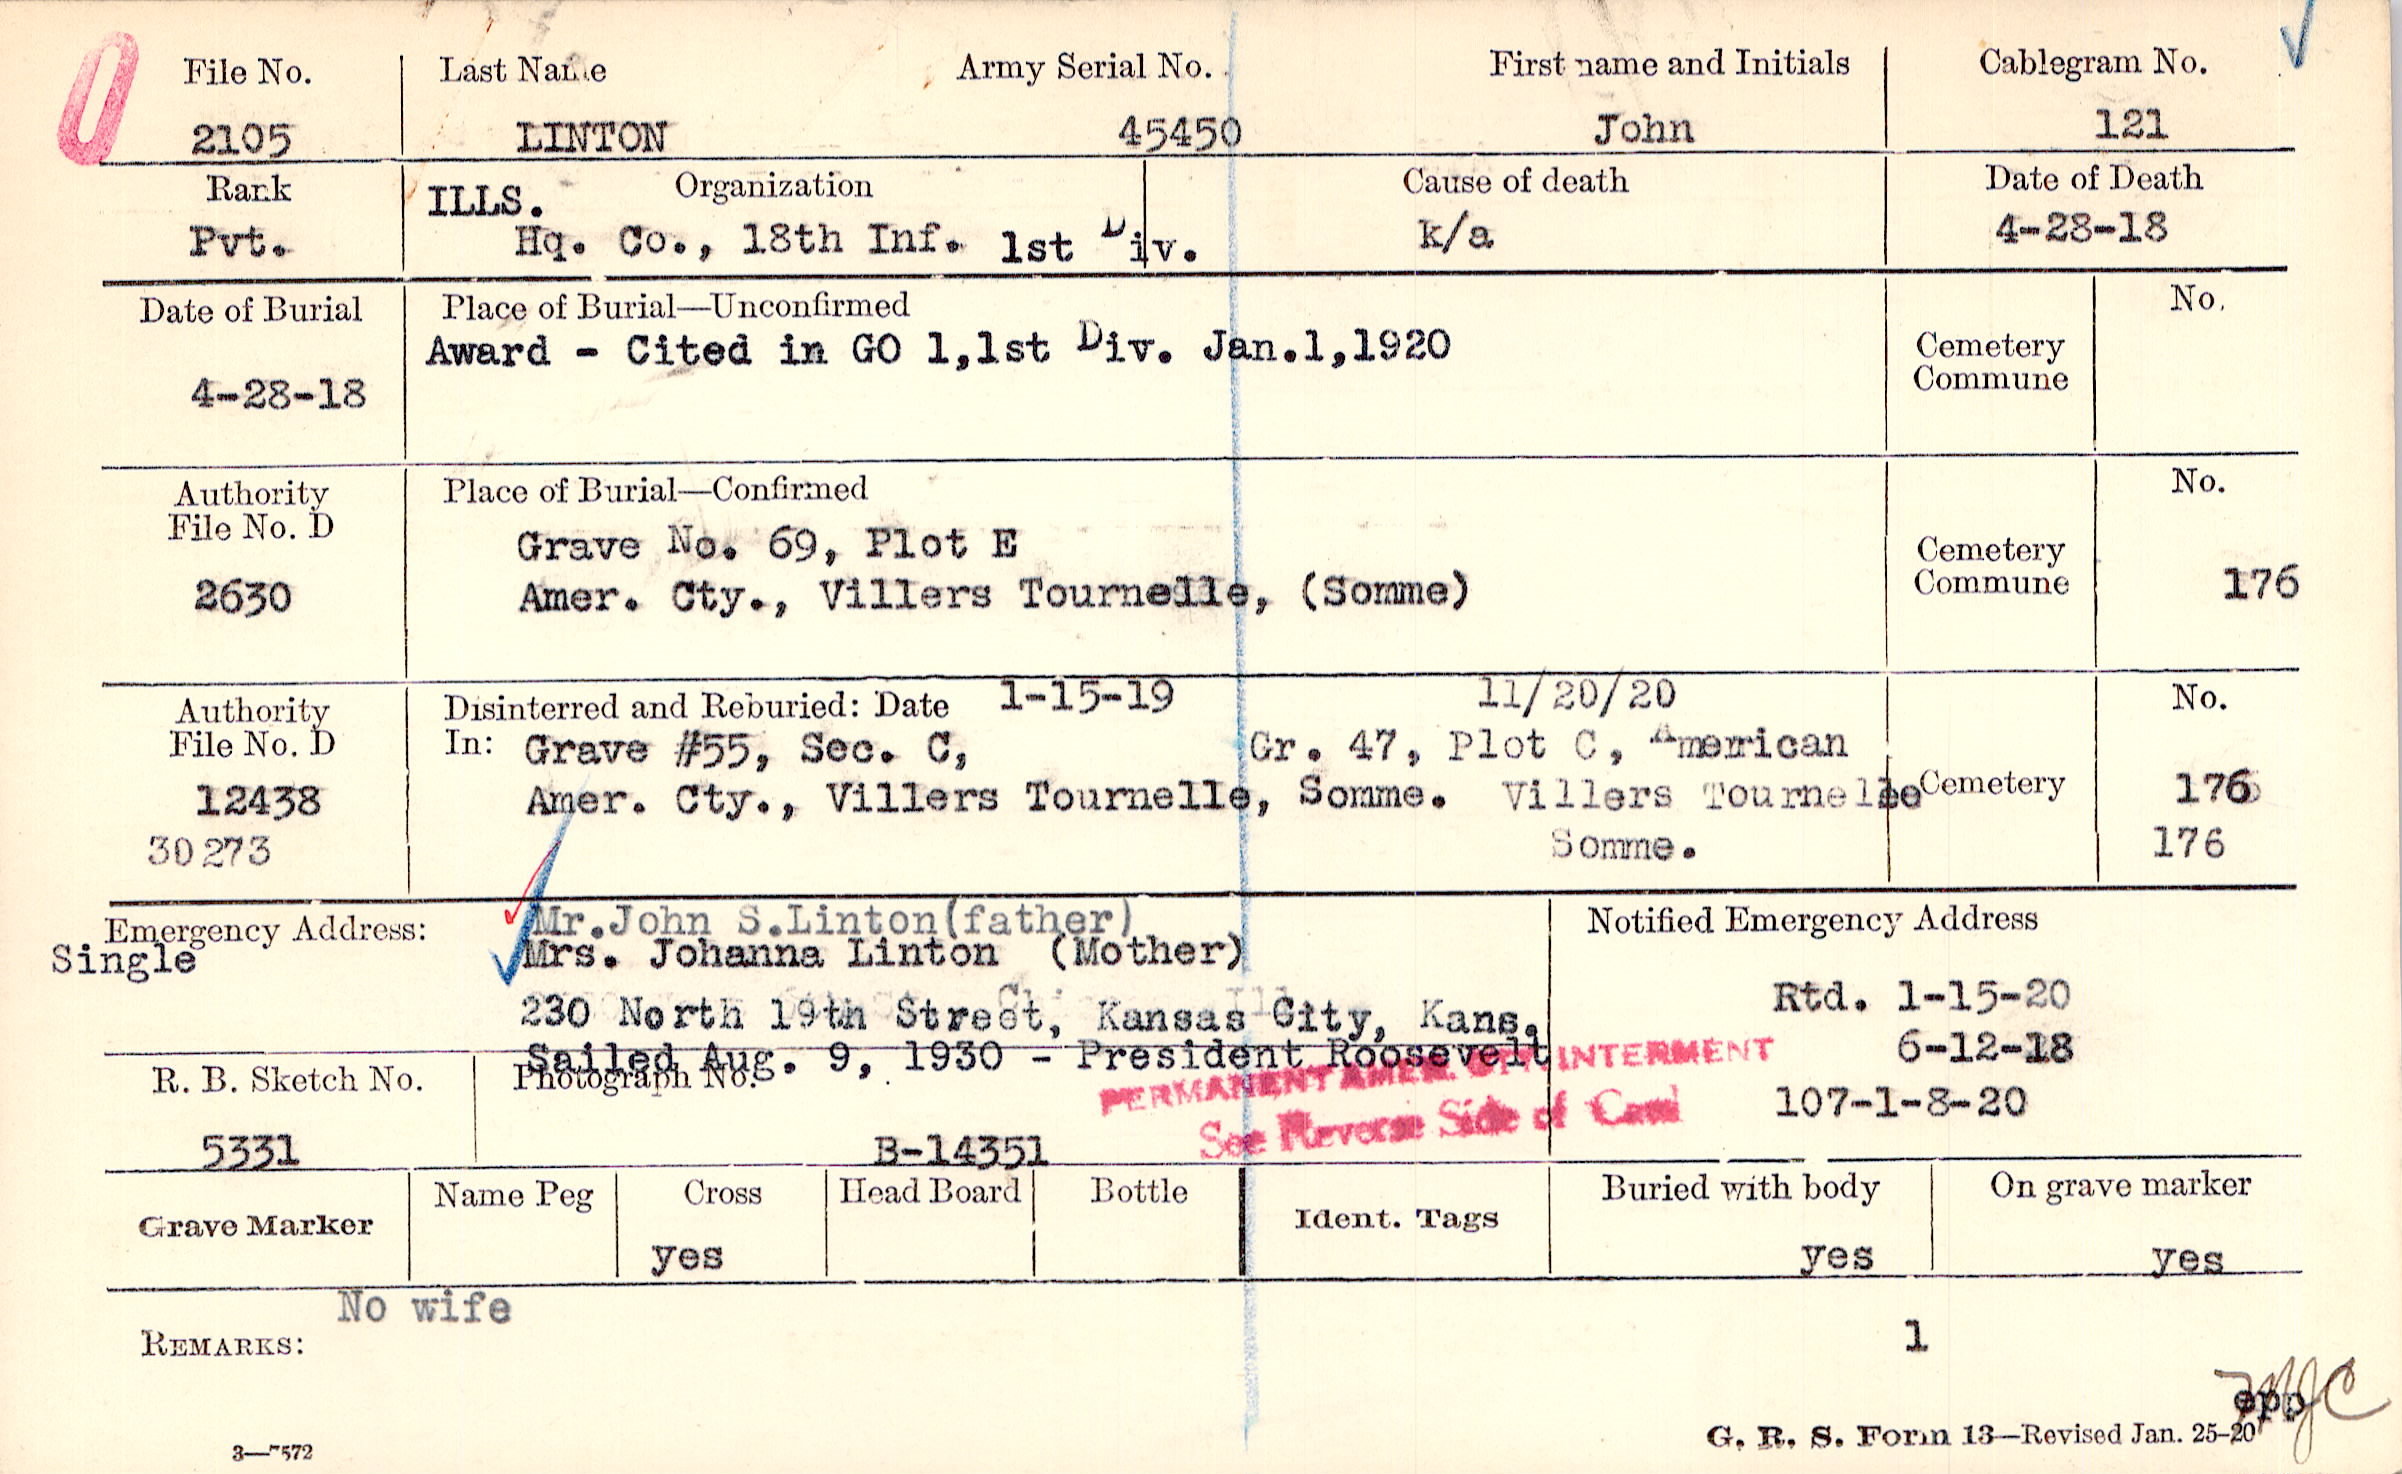 File No. Last Name Army Serial No. First name and Initials Cablegram No.
2105 LINTON 45450 John 121
Rank ILLS. Organization Cause of death Date of Death
Pvt. Hq. Co., 18th Inf. 1st Div. k/a 4-28-18
Date of Burial Place of Burial—Unconfirmed No.
Award - Cited in GO 1,1st Div. Jan.1,1920 Cemetery
Commune
4-28-18
Authority Place of Burial—Confirmed No.
File No. D
Grave No. 69, Plot E Cemetery
2630 Amer. Cty., Villers Tournelle, (Somme) Commune 176
Authority Disinterred and Reburied: Date 1-15-19 11/20/20 No.
File No. D In: Grave #55, Sec. C, Gr. 47, Plot C, American
12438 Amer. Cty., Villers Tournelle, Somme. Villers Tournelle Cemetery 176
30273 Somme. 176
Emergency Address: Mr.John S.Linton(father) Notified Emergency Address
Single Mrs. Johanna Linton (Mother)
230 North 19th Street, Kansas City, Kans. Rtd. 1-15-20
Sailed Aug. 9, 1930 - President Roosevelt 6-12-18
R. B. Sketch No. Photograph No. PERMANENT AMER. INTERMENT
See Reverse Side of Card 107-1-8-20
5331 B-14351
Grave Marker Name Peg Cross Head Board Bottle Ident. Tags Buried with body On grave marker
yes yes yes
No wife
REMARKS: 1
epp
G. R. S. Form 13—Revised Jan. 25-20
3—7572